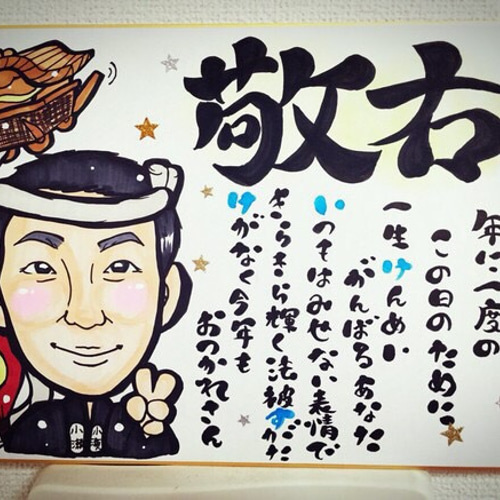 敬右
年に一度の
この日のために
一生けんめい
がんばるあなた
いつもはみせない表情で
きらきら輝く法被すがた
けがなく今年も
おつかれさん